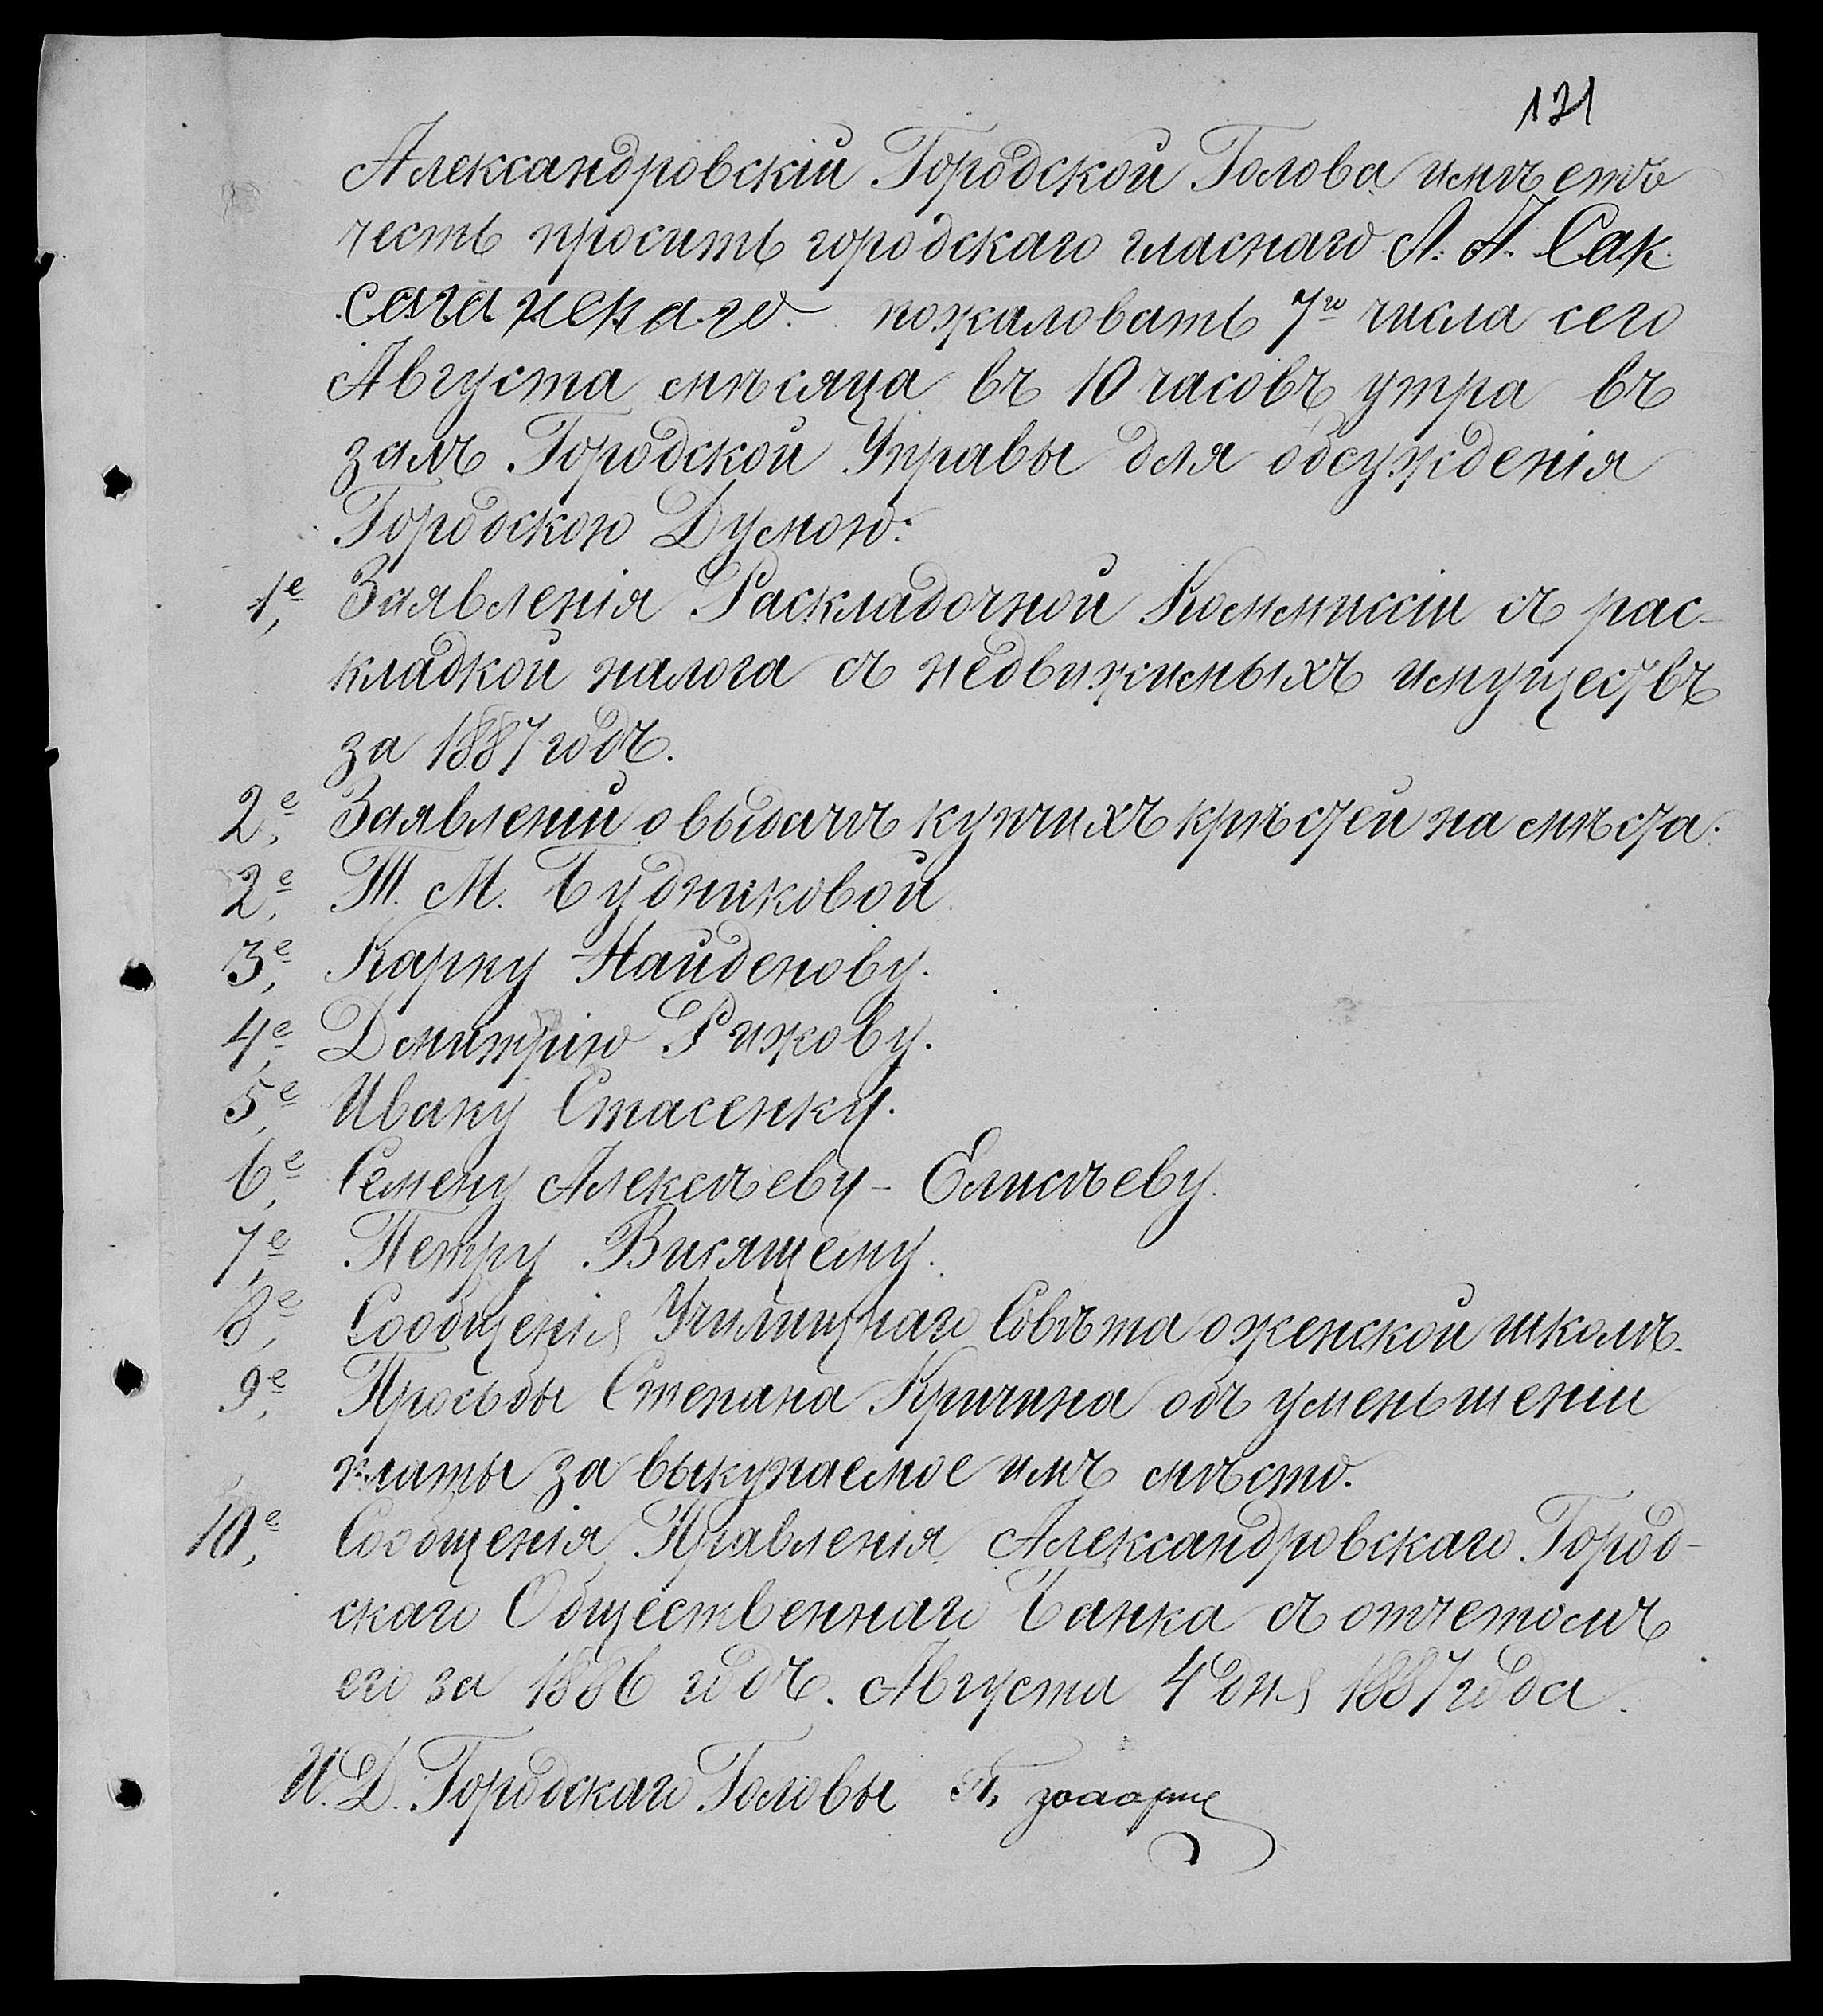 121
Александровскій Городской Голова имѣетъ
честь просить городскаго гласнаго А. А. Сак
саганскаго пожаловать 7го числа сего
Августа мѣсяца въ 10 часовъ утра въ
залъ Городской Управы для обсужденія
Городскою Думою:
1е, Заявленія Раскладочной Коммиссіи съ рас-
кладкой налога съ недвижимыхъ имуществъ
за 1887 годъ.
2е, Заявленій о выдачѣ купчихъ крѣпостей на мѣста:
2е, Т. М. Будниковой
3е, Карпу Найденову.
4е, Дмитрію Рижову.
5е, Ивану Стасенку.
6е, Семену Алексѣеву-Елисѣеву.
7е, Петру Висящему.
8е, Сообщенія Училищнаго Совѣта о женской школѣ.
9е, Просьбы Степана Кричина объ уменьшеніи
платы за выкупаемое имъ мѣсто.
10е, Сообщенія Правленія Александровскаго Город-
скаго Общественнаго Банка съ отчетомъ
его за 1886 годъ. Августа 4 дня 1887 года.
И. Д. Городскаго Головы